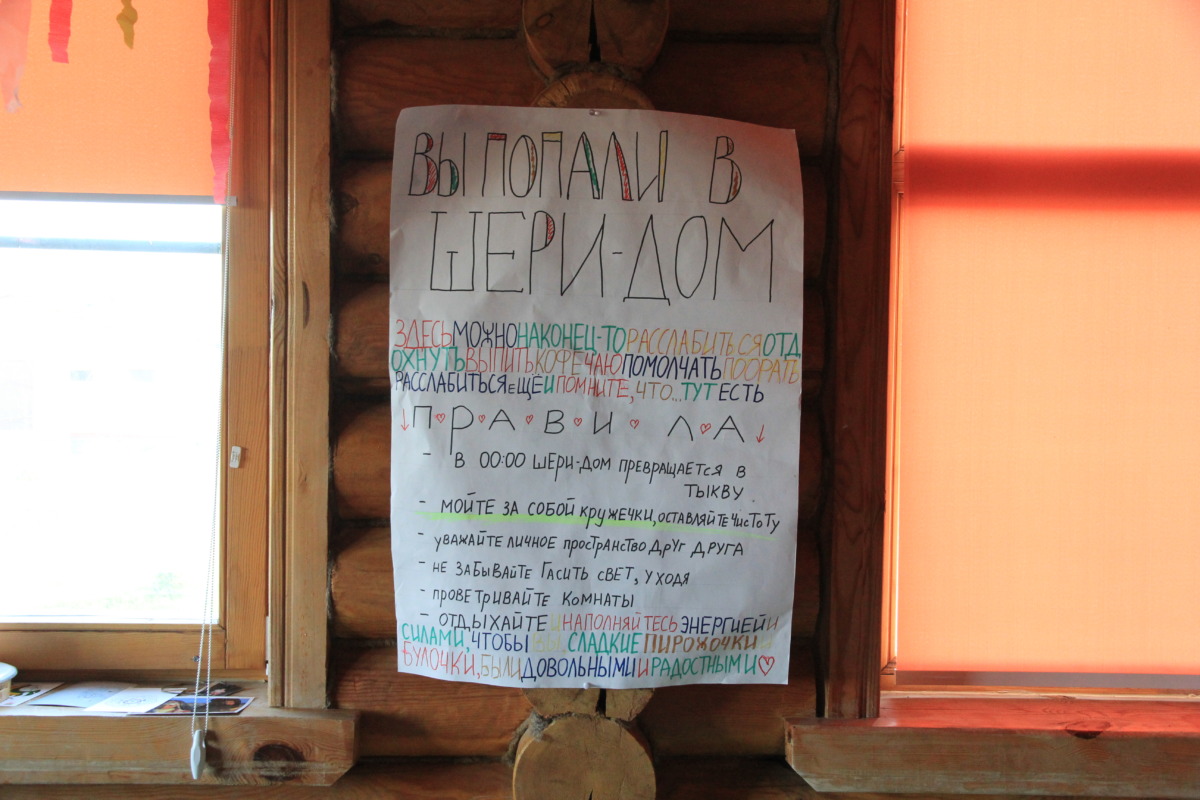 ВЫ ПОПАЛИ В
ШЕРИ-ДОМ
ЗДЕСЬ МОЖНО НАКОНЕЦ-ТО РАССЛАБИТЬСЯ ОТД
ОХНУТЬ ВЫПИТЬ КОФЕ ЧАЮ ПОМОЛЧАТЬ ПООРАТЬ
РАССЛАБИТЬСЯ ЕЩЁ И ПОМНИТЕ, ЧТО... ТУТ ЕСТЬ
↓ П♡Р♡А♡В♡И♡Л♡А ↓
- В 00:00 ШЕРИ-ДОМ ПРЕВРАЩАЕТСЯ В
ТЫКВУ.
- МОЙТЕ ЗА СОБОЙ КРУЖЕЧКИ, ОСТАВЛЯЙТЕ ЧИСТОТУ
- УВАЖАЙТЕ ЛИЧНОЕ ПРОСТРАНСТВО ДРУГ ДРУГА
- НЕ ЗАБЫВАЙТЕ ГАСИТЬ СВЕТ, УХОДЯ
- ПРОВЕТРИВАЙТЕ КОМНАТЫ
- ОТДЫХАЙТЕ И НАПОЛНЯЙТЕСЬ ЭНЕРГИЕЙ И
СИЛАМИ, ЧТОБЫ ВЫ, СЛАДКИЕ ПИРОЖОЧКИ И
БУЛОЧКИ, БЫЛИ ДОВОЛЬНЫМИ И РАДОСТНЫМИ ♡